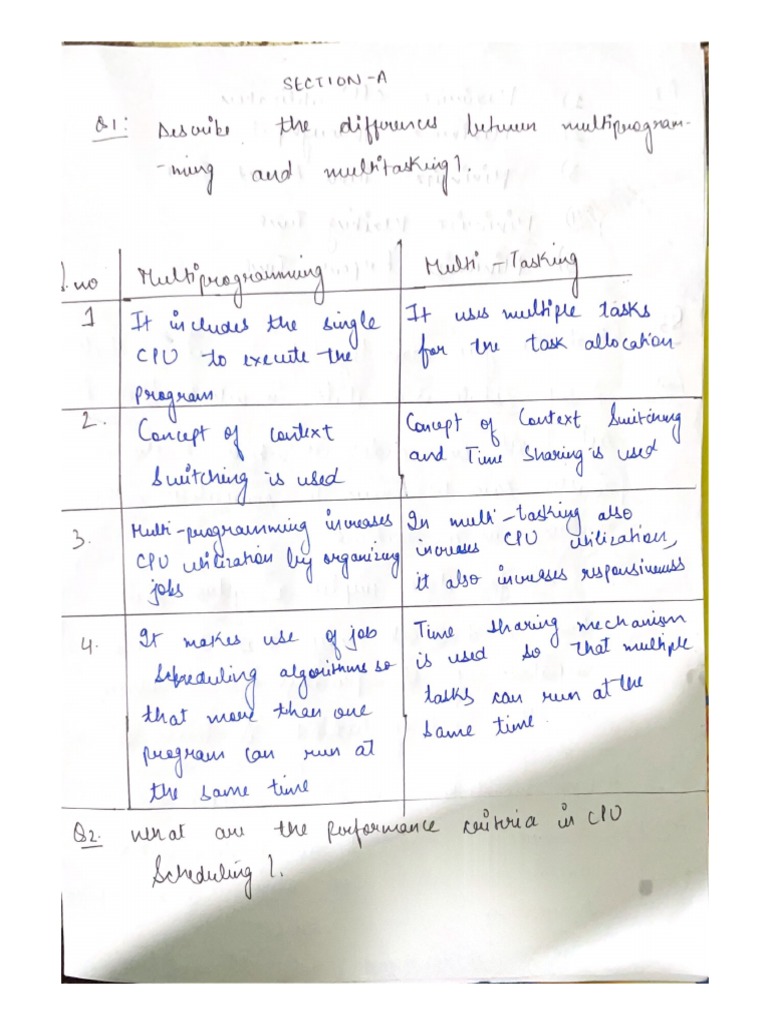 SECTION-A
Q1: Describe the differences between multiprogram-
-ming and multitasking?.
S.no Multiprogramming Multi-Tasking
1 It includes the single
CPU to execute the
program
It uses multiple tasks
for the task allocation
2. Concept of context
Switching is used
Concept of Context Switching
and Time Sharing is used
3. Multi-programming increases
CPU utilization by organizing
jobs
In multi-tasking also
increases CPU utilization,
it also increases responsiveness
4. It makes use of job
Scheduling algorithms so
that more than one
program can run at
the same time
Time sharing mechanism
is used so that multiple
tasks can run at the
same time.
Q2. What are the performance criteria in CPU
Scheduling?.